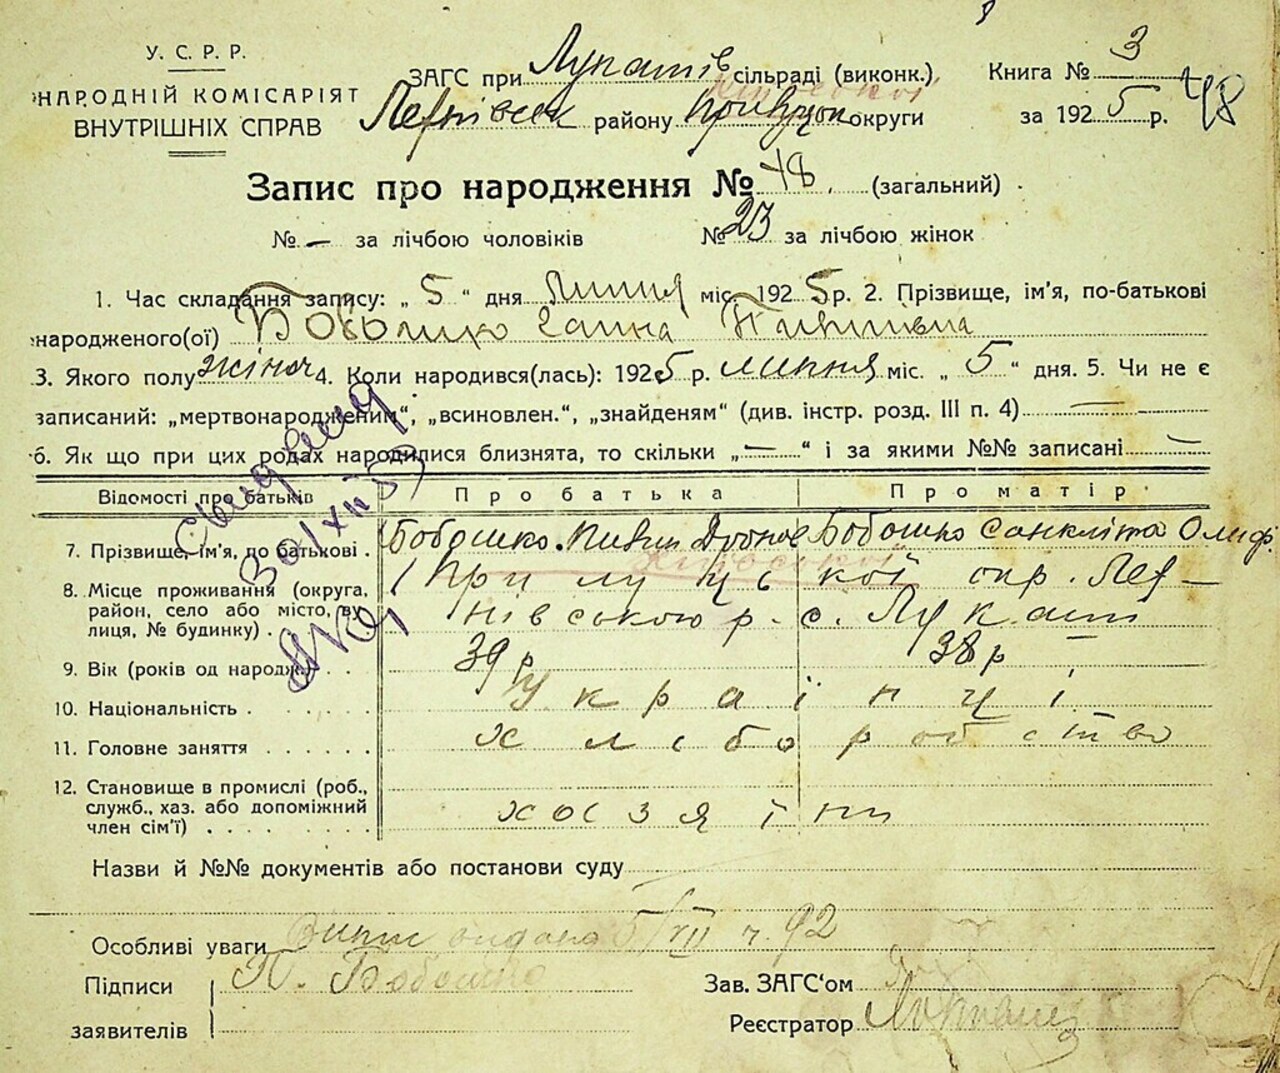 У. С. Р. Р.
НАРОДНІЙ КОМІСАРІЯТ
ВНУТРІШНІХ СПРАВ
ЗАГС при Лукашів сільраді (виконк.)
району округи
Книга № 3
за 1925 р. 48
Запис про народження № 48. (загальний)
№ — за лічбою чоловіків № 23 за лічбою жінок
1. Час складання запису: „ 5 “ дня Липня міс. 1925 р. 2. Прізвище, ім'я, по-батькові
народженого(ої) Бобошко Ганна Павлівна
3. Якого полу жіноч 4. Коли народився(лась): 1925 р. липня міс. „ 5 “ дня. 5. Чи не є
записаний: „мертвонародженим“, „всиновлен.“, „знайденям“ (див. інстр. розд. III п. 4) —
6. Як що при цих родах народилися близнята, то скільки „ — “ і за якими №№ записані —
Відомості про батьків Про батька Про матір
7. Прізвище, ім'я, по батькові . Бобошко Бобошко
8. Місце проживання (округа, Прилуцької окр.
район, село або місто, ву- с.
лиця, № будинку) .
9. Вік (років од народж.) . . 39 р 38 р
10. Національність . . . . . . Українці
11. Головне заняття . . . . . . хліборобство
12. Становище в промислі (роб.,
служб., хаз. або допоміжний хозяїни
член сім'ї) . . . . . . .
Назви й №№ документів або постанови суду
Особливі уваги 5/VII 92
Підписи П. Бобошко
заявителів
Зав. ЗАГС'ом
Реєстратор